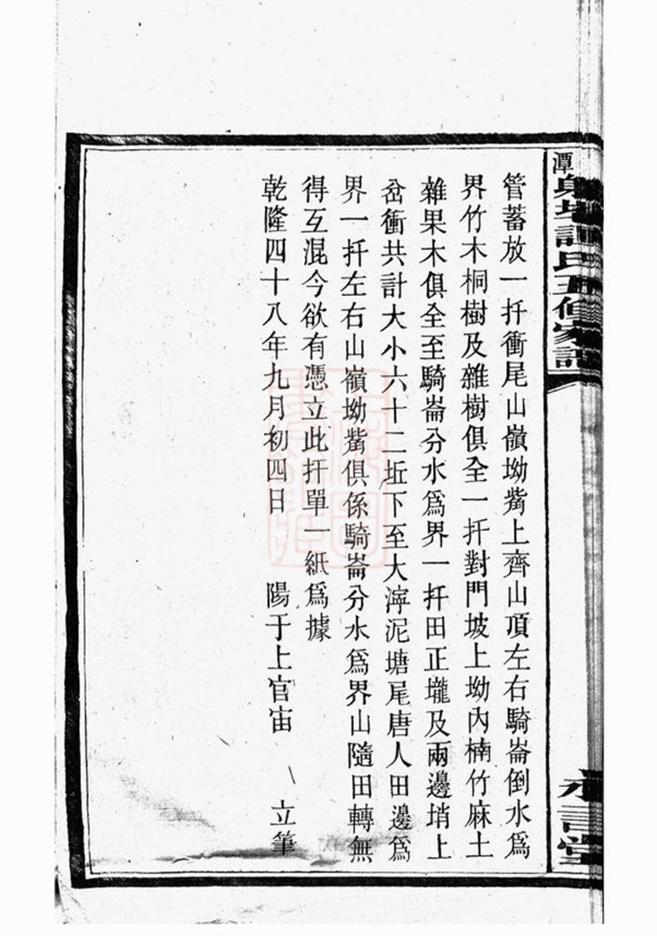 管蓄放一扦衝尾山嶺坳嘴上齊山頂左右騎崙倒水為
界竹木桐樹及雜樹俱全一扦對門坡上坳內楠竹麻土
雜果木俱全至騎崙分水爲界一扦田正壠及兩邊埫上
岔衝共計大小六十二坵下至大濘泥塘尾唐人田邊爲
界一扦左右山嶺坳嘴俱係騎崙分水爲界山隨田轉無
得互混今欲有憑立此扦單一紙爲據
乾隆四十八年九月初四日　陽于上官宙　立筆